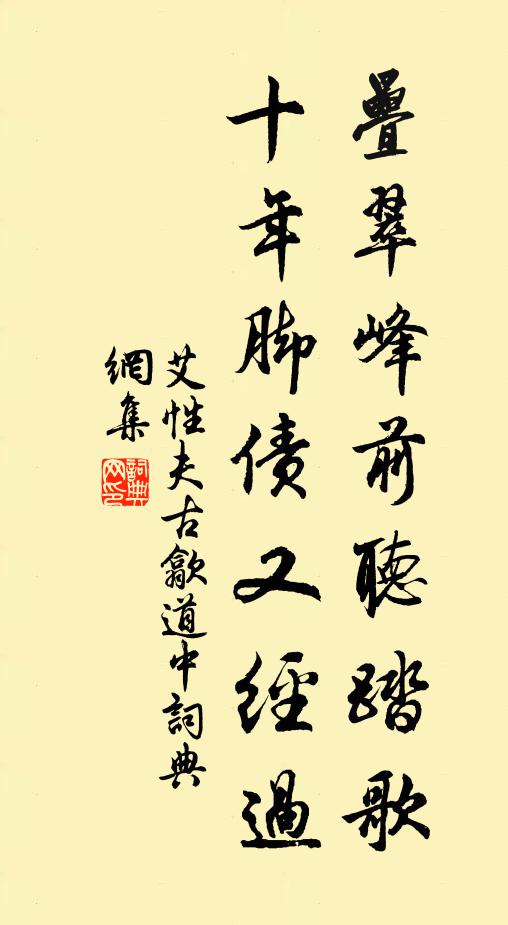 疊翠峰前聽踏歌
十年脚債又經過
艾性夫古歙道中詞典
網集
詞典
网印